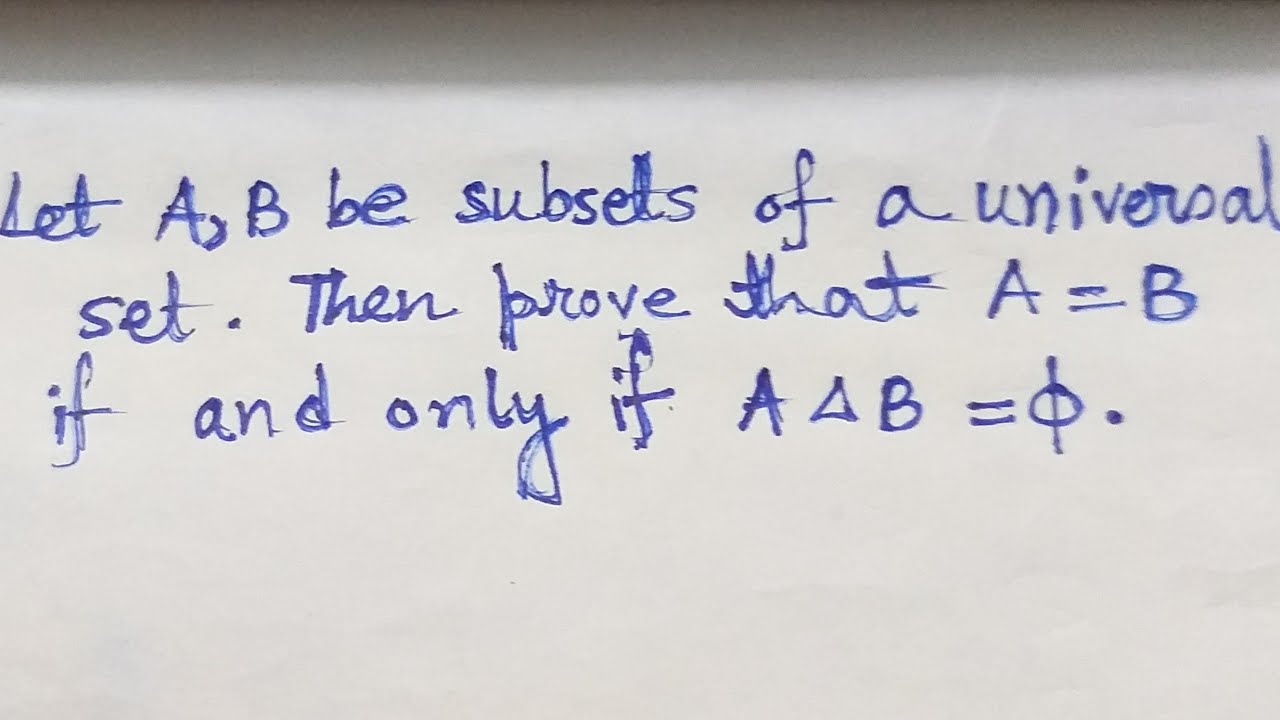 Let A, B be subsets of a universal
set. Then prove that A = B
if and only if A Δ B = ϕ.